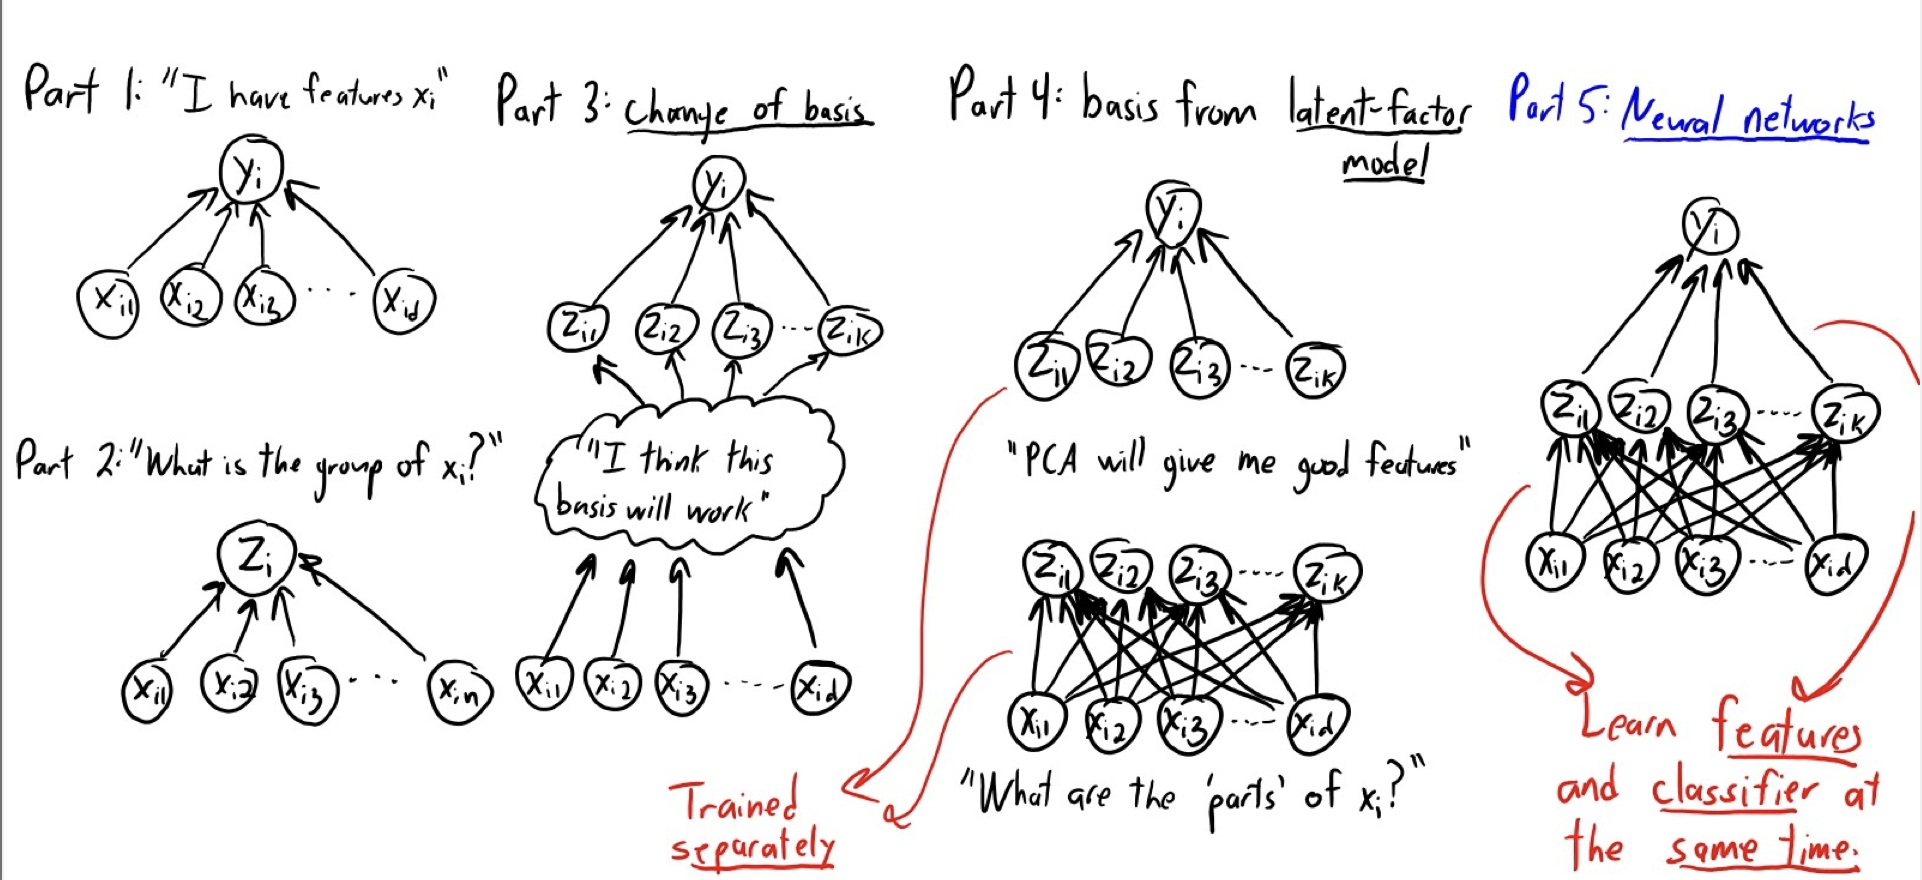 Part 1: "I have features xi"
yi
xi1 xi2 xi3 ... xid
Part 2: "What is the group of xi?"
zi
xi1 xi2 xi3 ... xin
Part 3: Change of basis
yi
zi1 zi2 zi3 ... zik
"I think this
basis will work"
xi1 xi2 xi3 ... xid
Part 4: basis from latent-factor
model
yi
zi1 zi2 zi3 ... zik
"PCA will give me good features"
zi1 zi2 zi3 ... zik
xi1 xi2 xi3 ... xid
"What are the 'parts' of xi?"
Trained
separately
Part 5: Neural networks
yi
zi1 zi2 zi3 ... zik
xi1 xi2 xi3 ... xid
Learn features
and classifier at
the same time.